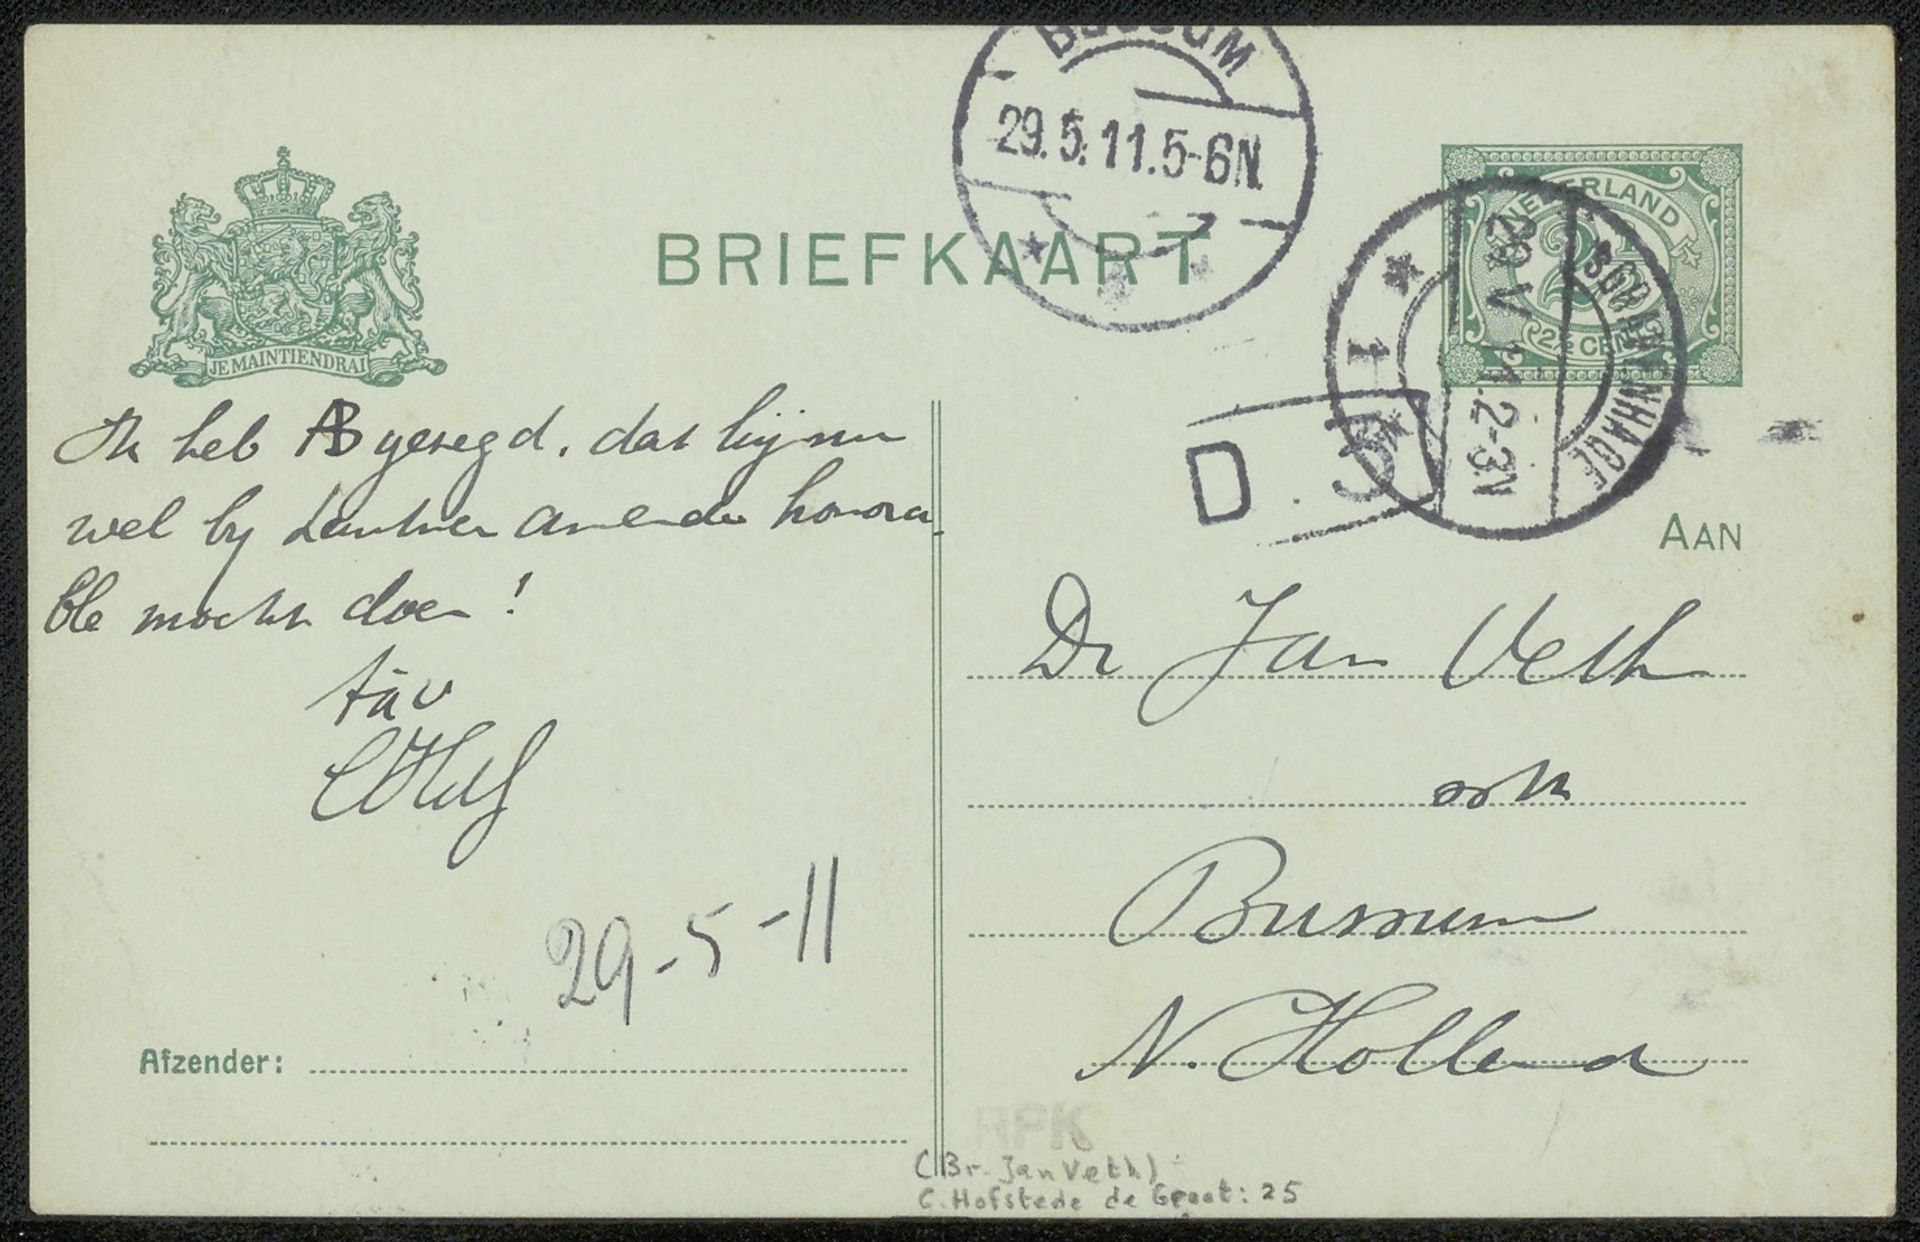 BUSSUM
29.5.11.5-6N.
NEDERLAND
2½
2½ CENT
'SGRAVENHAGE
29 V 11.2-3N
1
JE MAINTIENDRAI
BRIEFKAART
D
AAN
Ik heb AB gezegd, dat hij nu
wel by Lantner amende honora-
ble mocht doen!
tàv
CHdG
29-5-11
Dr Jan Veth
Bussum
N. Holland
Afzender:
RPK
(Br. Jan Veth)
C. Hofstede de Groot: 25